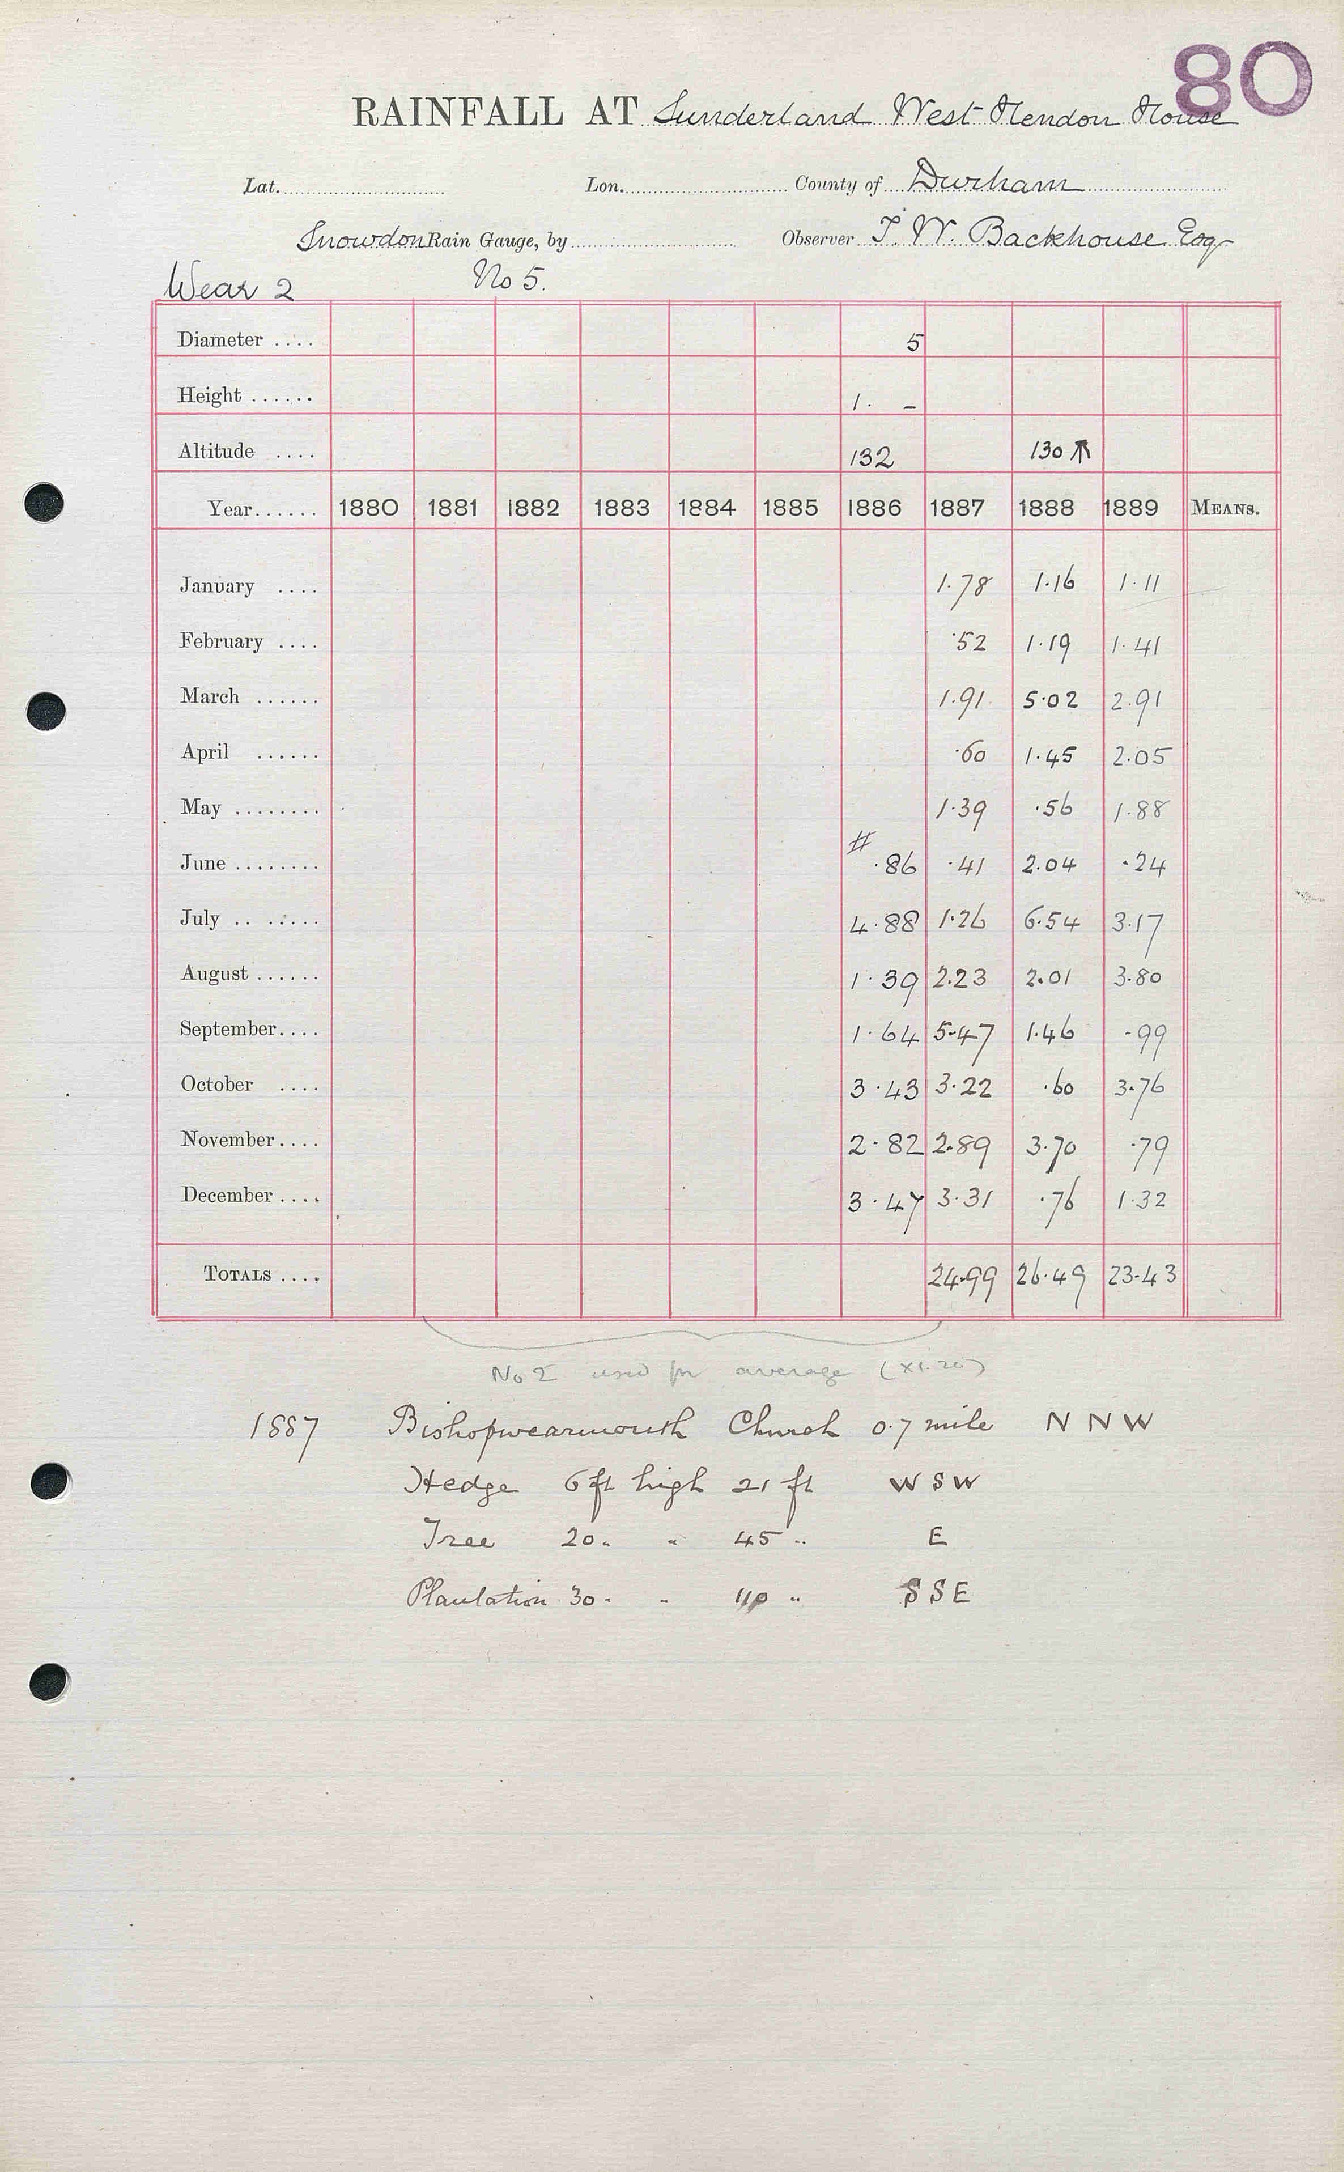 80
RAINFALL AT Sunderland West Hendon House
Lat. Lon. County of Durham
Snowdon Rain Gauge, by Observer T. W. Backhouse Esq
Wear 2 No 5.
Diameter .... 5
Height ...... 1. –
Altitude .... 132 130 ↑
Year...... 1880 1881 1882 1883 1884 1885 1886 1887 1888 1889 MEANS.
January .... 1.78 1.16 1.11
February .... .52 1.19 1.41
March ...... 1.91 5.02 2.91
April ...... .60 1.45 2.05
May ........ 1.39 .56 1.88
June ........ # .86 .41 2.04 .24
July .. ..... 4.88 1.26 6.54 3.17
August ...... 1.39 2.23 2.01 3.80
September.... 1.64 5.47 1.46 .99
October .... 3.43 3.22 .60 3.76
November.... 2.82 2.89 3.70 .79
December .... 3.47 3.31 .76 1.32
TOTALS .... 24.99 26.49 23.43
No 2 used for average
1887 Bishopwearmouth Church 0.7 mile N N W
Hedge 6 ft high 21 ft W S W
Tree 20 " " 45 " E
Plantation 30 " " 110 " S S E